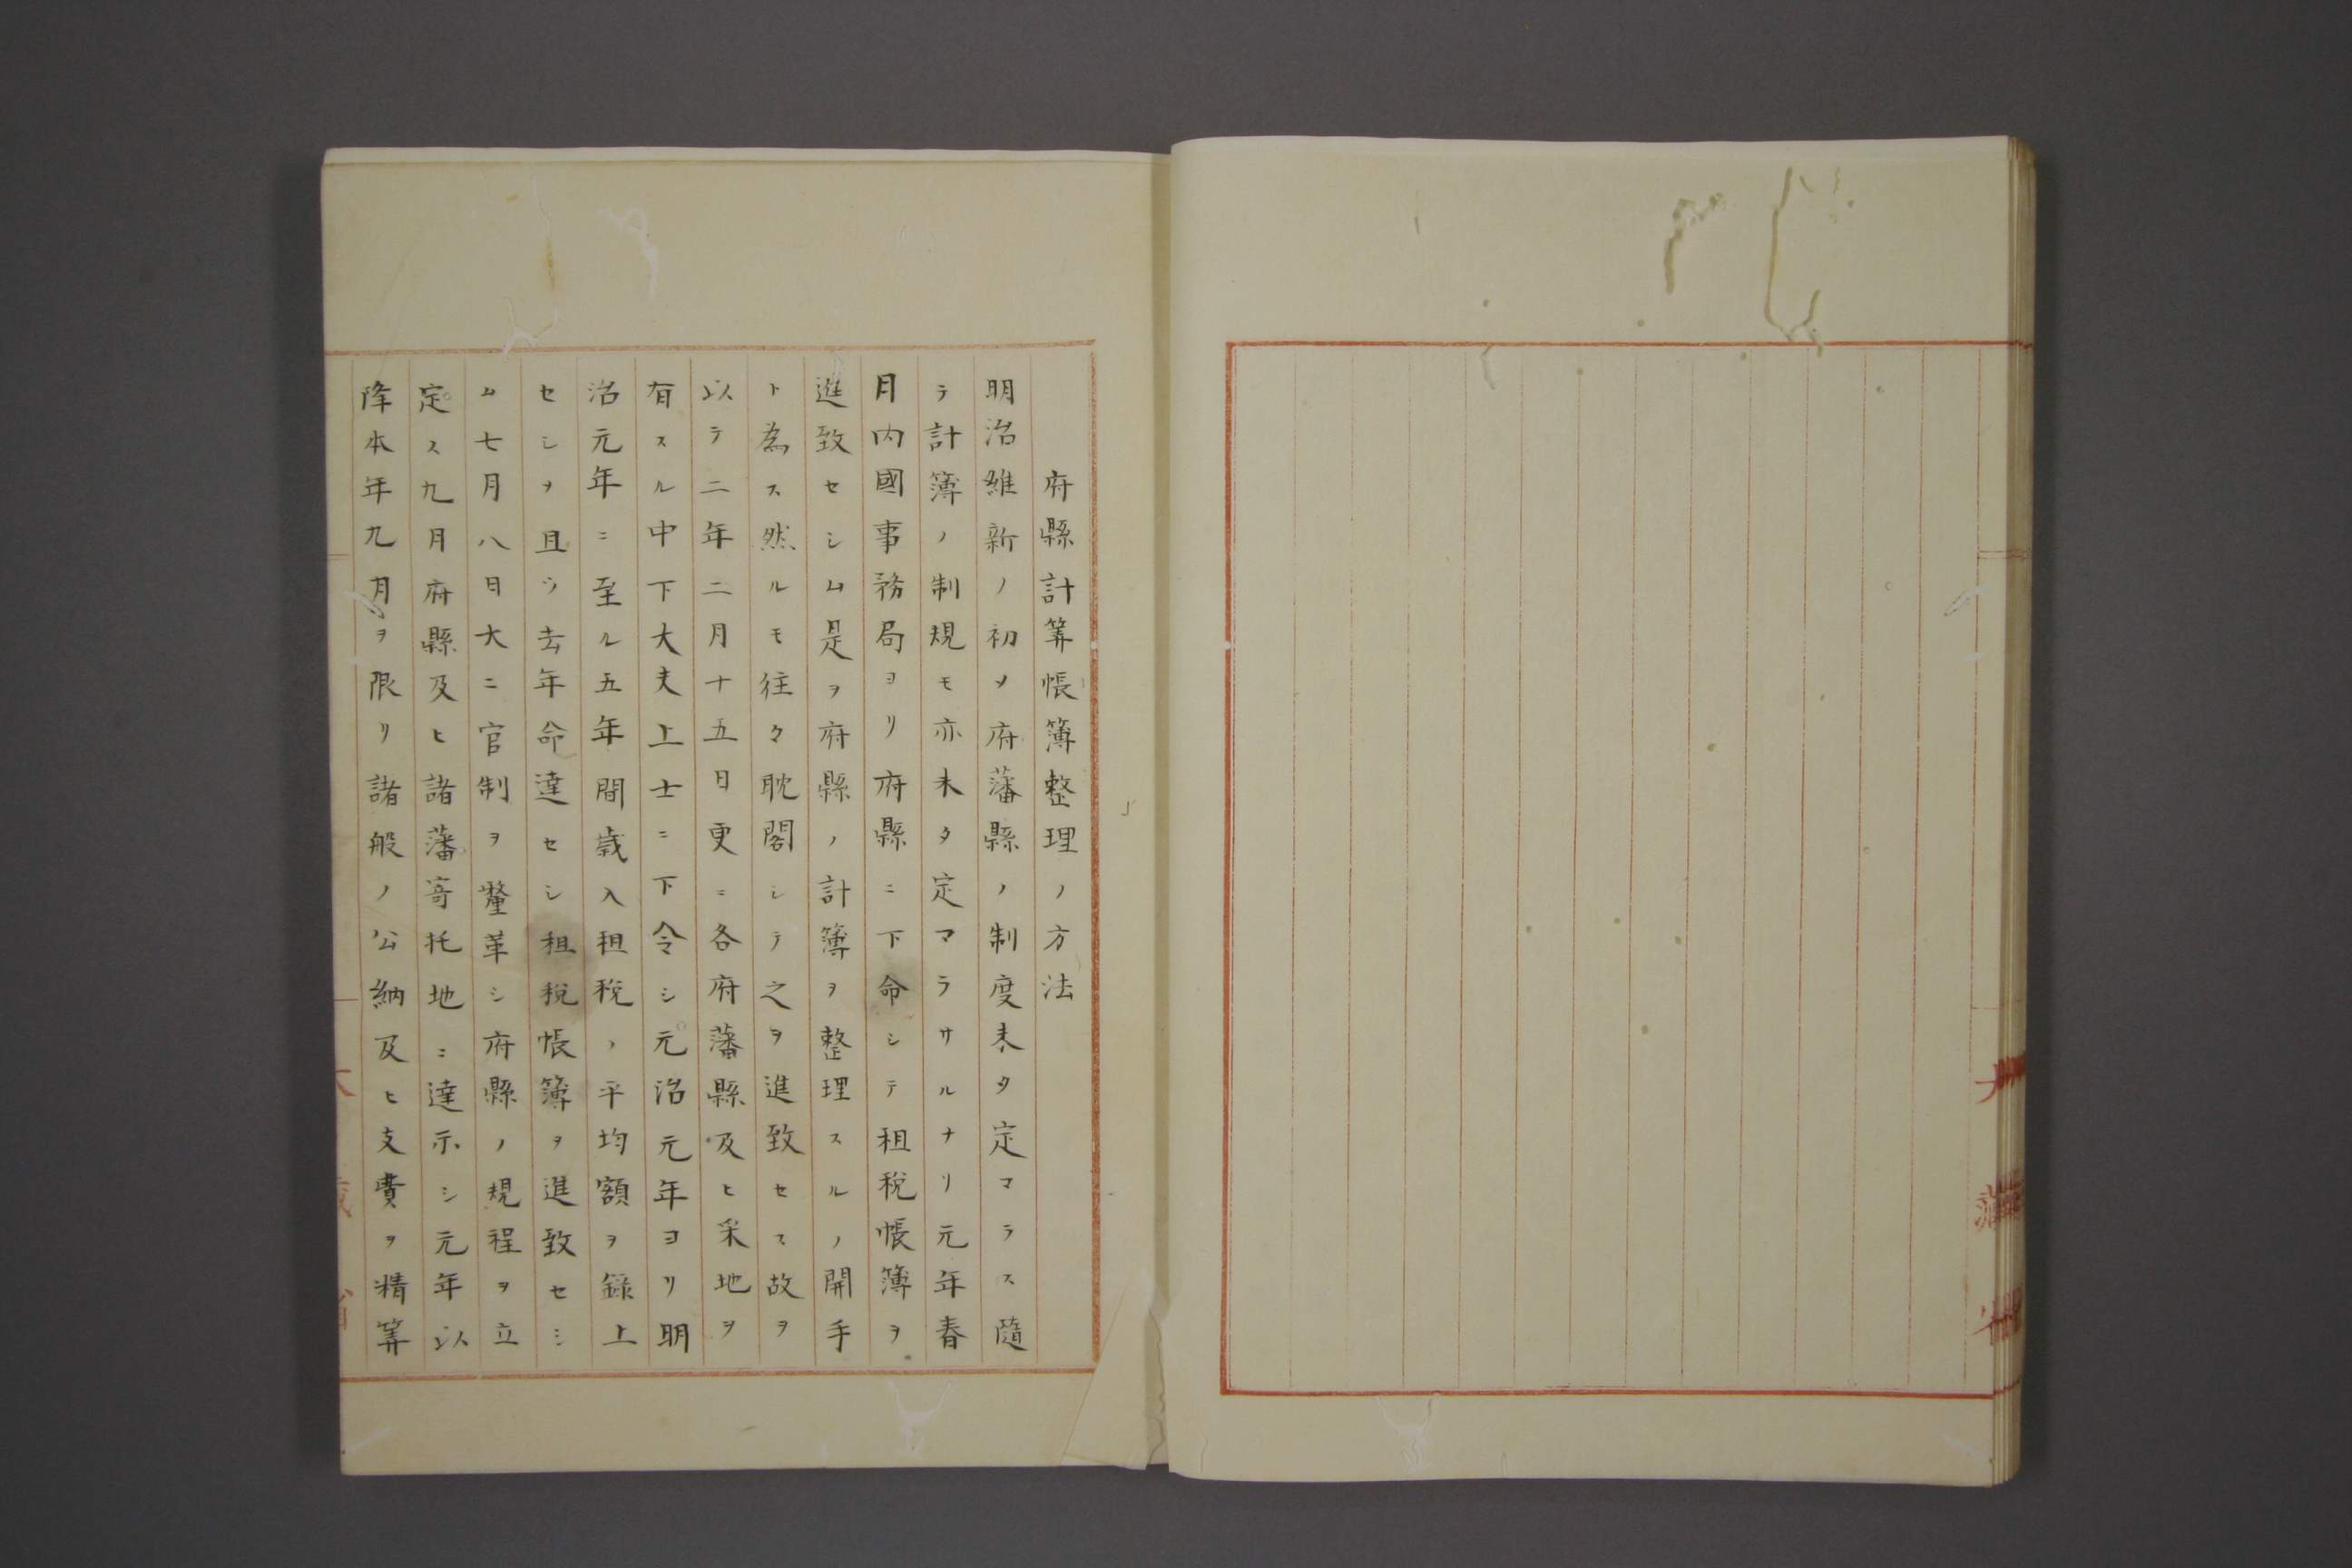 府縣計筭帳簿整理ノ方法
明治維新ノ初メ府藩縣ノ制度未タ定マラス隨
ラ計簿ノ制規モ亦未タ定マラサルナリ元年春
月内國事務局ヨリ府縣ニ下命シテ租税帳簿ヲ
進致セシム是ヲ府縣ノ計簿ヲ整理スルノ開手
ト為ス然ルモ往々耽閣シテ之ヲ進致セス故ヲ
以テ二年二月十五日更ニ各府藩縣及ヒ采地ヲ
有スル中下大夫上士ニ下令シ元治元年ヨリ明
治元年ニ至ル五年間歳入租税ノ平均額ヲ録上
セシヲ且ツ去年命達セシ租税帳簿ヲ進致セシ
ム七月八日大ニ官制ヲ釐革シ府縣ノ規程ヲ立
定ス九月府縣及ヒ諸藩寄托地ニ達示シ元年以
降本年九月ヲ限リ諸般ノ公納及ヒ支費ヲ精筭